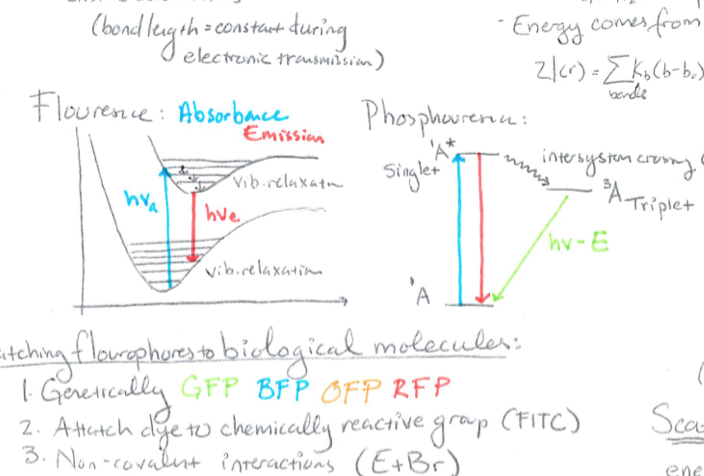 (bond length = constant during
electronic transmission)
- Energy comes from
(r) = Σ Kb(b-b₀)
bonds
Flourence: Absorbance
Emission
vib. relaxatn
hνa
hνe
vib. relaxatim
Phosphourenia:
¹A*
Singlet
intersystem crossing (
³A Triplet
hν - E
¹A
atching flourophores to biological molecules:
1. Genetically GFP BFP OFP RFP
2. Attatch dye to chemically reactive group (FITC)
3. Non-covalent interactions (E+Br)
(
Sca
ene